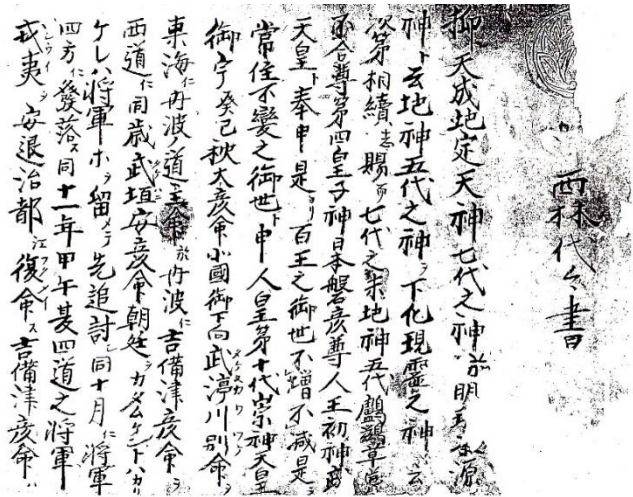 西林代々書
抑天成地定天神七代之神於明 源
神ト云地神五代之神ヲ下化現霊之神ト云
次第相續志賜フ七代之末地神五代鸕鷀草葺
不合尊第四皇子神日本磐彦尊人王初神武
天皇ト奉申是ヨリ百王之御世不増不减是ヲ
常住不變之御世ト申人皇第十代崇神天皇
御宇癸己秋大彦命北國御下向武渟川別命ヲ
東海ニ丹波ノ道主命於丹波ニ吉備津彦命ヲ
西道ニ同歳武埴安彦命朝廷ヲカタムケントハカリ
ケレハ將軍ホヲ留メテ先追討シ同十月ニ將軍
四方ニ發落ス同十一年甲午夏四道之將軍
戎夷ヲ安退治都江復命ス吉備津彦命ハ